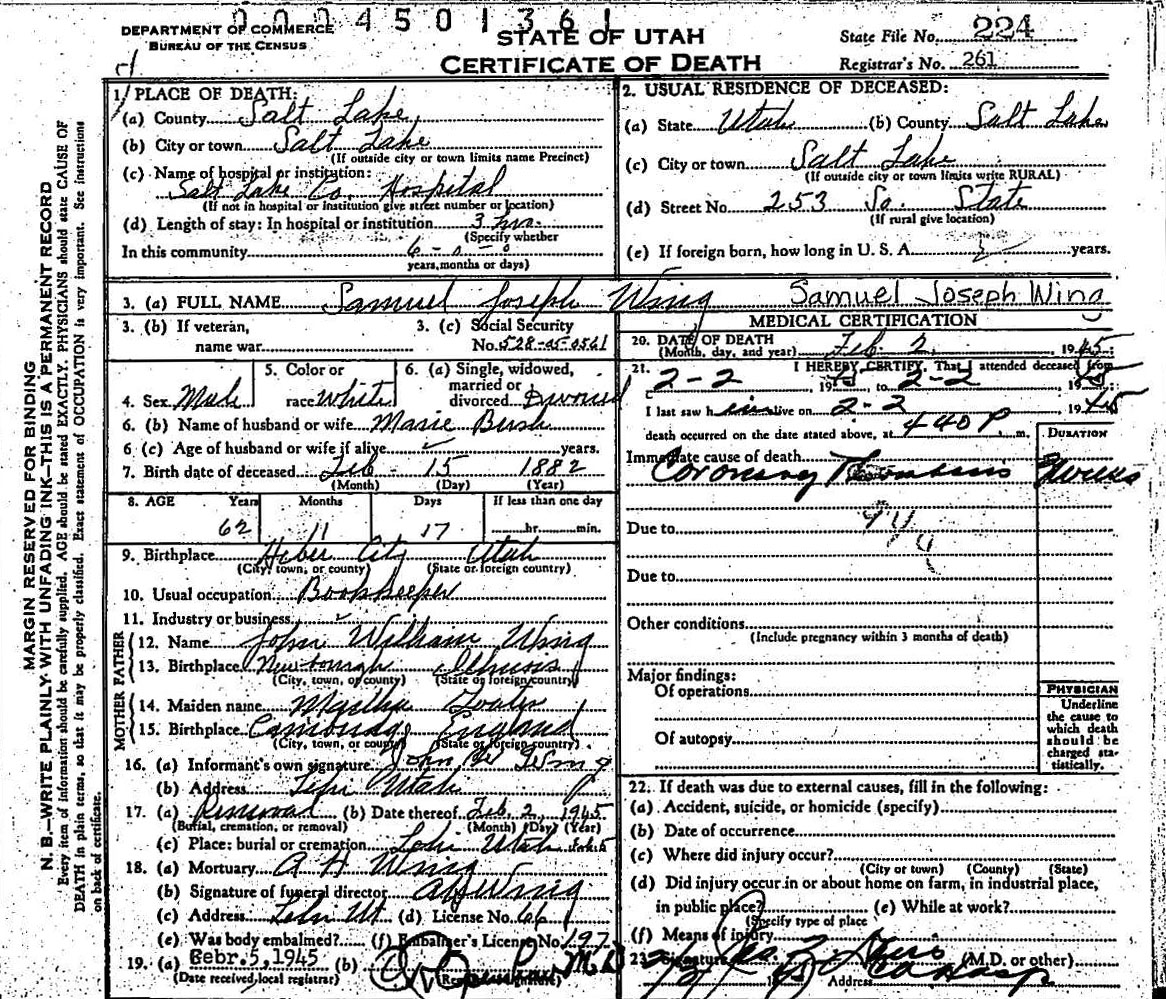 0004501361
DEPARTMENT OF COMMERCE
BUREAU OF THE CENSUS
STATE OF UTAH
CERTIFICATE OF DEATH
State File No. 224
Registrar's No. 261
MARGIN RESERVED FOR BINDING
N. B.—WRITE PLAINLY WITH UNFADING INK—THIS IS A PERMANENT RECORD
Every item of information should be carefully supplied. AGE should be stated EXACTLY. PHYSICIANS should state CAUSE OF
DEATH in plain terms, so that it may be properly classified. Exact statement of OCCUPATION is very important. See instructions
on back of certificate.
1. PLACE OF DEATH:
(a) County Salt Lake
(b) City or town Salt Lake
(If outside city or town limits name Precinct)
(c) Name of hospital or institution:
Salt Lake Co. Hospital
(If not in hospital or institution give street number or location)
(d) Length of stay: In hospital or institution 3 hrs.
(Specify whether
In this community 6 - 0 - 0
years, months or days)
2. USUAL RESIDENCE OF DECEASED:
(a) State Utah (b) County Salt Lake
(c) City or town Salt Lake
(If outside city or town limits write RURAL)
(d) Street No. 253 So. State
(If rural give location)
(e) If foreign born, how long in U. S. A. years.
3. (a) FULL NAME Samuel Joseph Wing Samuel Joseph Wing
3. (b) If veteran,
name war
3. (c) Social Security
No. 528-05-0561
4. Sex Male
5. Color or
race White
6. (a) Single, widowed,
married or
divorced Divorced
6. (b) Name of husband or wife Marie Bush
6. (c) Age of husband or wife if alive years.
7. Birth date of deceased Feb - 15 1882
(Month) (Day) (Year)
8. AGE Years Months Days If less than one day
62 11 17 hr. min.
9. Birthplace Heber City Utah
(City, town, or county) (State or foreign country)
10. Usual occupation Bookkeeper
11. Industry or business
FATHER
12. Name John William Wing
13. Birthplace Illinois
(City, town, or county) (State or foreign country)
MOTHER
14. Maiden name Martha
15. Birthplace Cambridge England
(City, town, or county) (State or foreign country)
16. (a) Informant's own signature John Wing
(b) Address Lehi Utah
17. (a) Removal (b) Date thereof Feb. 2, 1945
(Burial, cremation, or removal) (Month) (Day) (Year)
(c) Place: burial or cremation Lehi Utah Feb. 5
18. (a) Mortuary A H Wing
(b) Signature of funeral director A H Wing
(c) Address Lehi Ut (d) License No. 66
(e) Was body embalmed? (f) Embalmer's License No. 197
19. (a) Febr. 5, 1945 (b) M.D.
(Date received local registrar) (Registrar's signature)
MEDICAL CERTIFICATION
20. DATE OF DEATH
(Month, day, and year) Feb. 2, 1945
21. I HEREBY CERTIFY, That I attended deceased from
2-2 1945, to 2-2 1945
I last saw him alive on 2-2 1945
death occurred on the date stated above, at 440 P m.
DURATION
Immediate cause of death
Coronary Thrombosis
Due to
Due to
Other conditions
(Include pregnancy within 3 months of death)
Major findings:
Of operations
Of autopsy
PHYSICIAN
Underline
the cause to
which death
should be
charged sta-
tistically.
22. If death was due to external causes, fill in the following:
(a) Accident, suicide, or homicide (specify)
(b) Date of occurrence
(c) Where did injury occur?
(City or town) (County) (State)
(d) Did injury occur in or about home on farm, in industrial place,
in public place? (e) While at work?
(Specify type of place
(f) Means of injury
23. Signature (M.D. or other)
Address Co Hosp